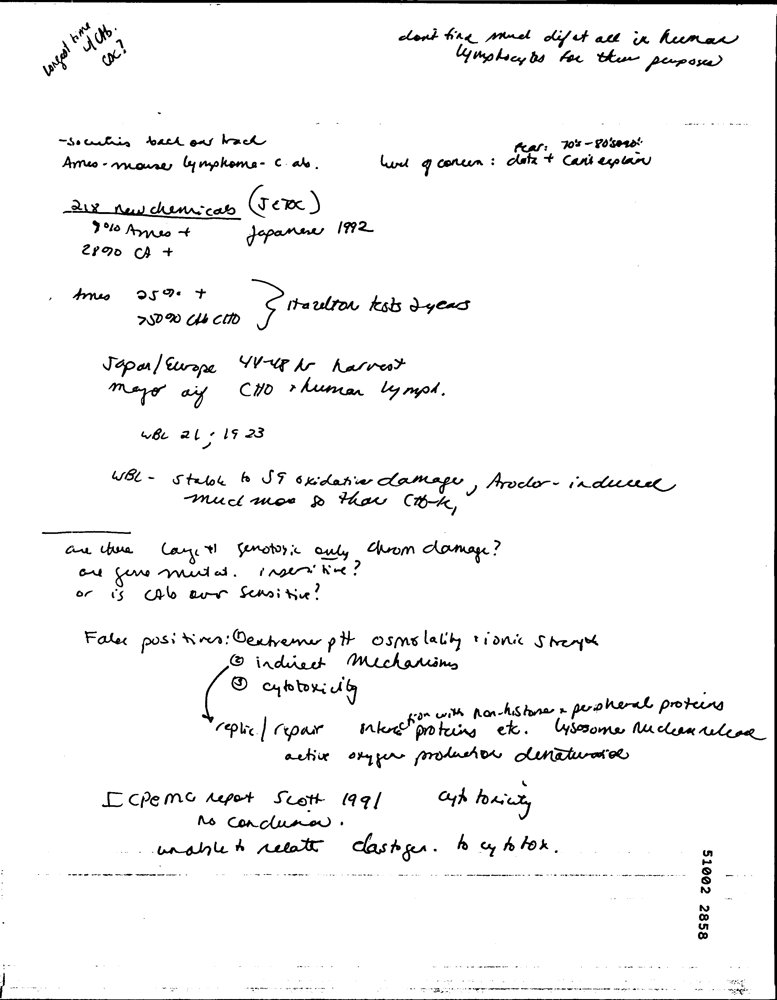 longest time
w/ CAb.
CDC?
don't find much dif at all in human
lymphocytes for these purposes
- societies back our track
Ames - mouse lymphoma - c. ab.
level of concern : data + can't explain
fear: 70's - 80's
218 new chemicals (JETOC)
9% Ames + Japanese 1992
28% CA +
Ames 25% +
>50% CAb CHO
} Hazelton tests 2 years
Japan/Europe 44-48 hr harvest
major dif CHO + human lymph.
WBL 21 ; 19 23
WBL - stable to S9 oxidative damage, Aroclor-induced
much more so than CHO-K,
are there
genotoxic only chrom damage?
are gene mutat. insensitive?
or is CAb over sensitive?
False positives: ① extreme pH osmolality + ionic strength
② indirect mechanisms
③ cytotoxicity
replic/repair interaction with non-histone + peripheral proteins
proteins etc. lysosome nuclease release
active oxygen production
ICPEMC report Scott 1991 cytotoxicity
no conclusion.
unable to relate clastogen. to cytotox.
51002 2858